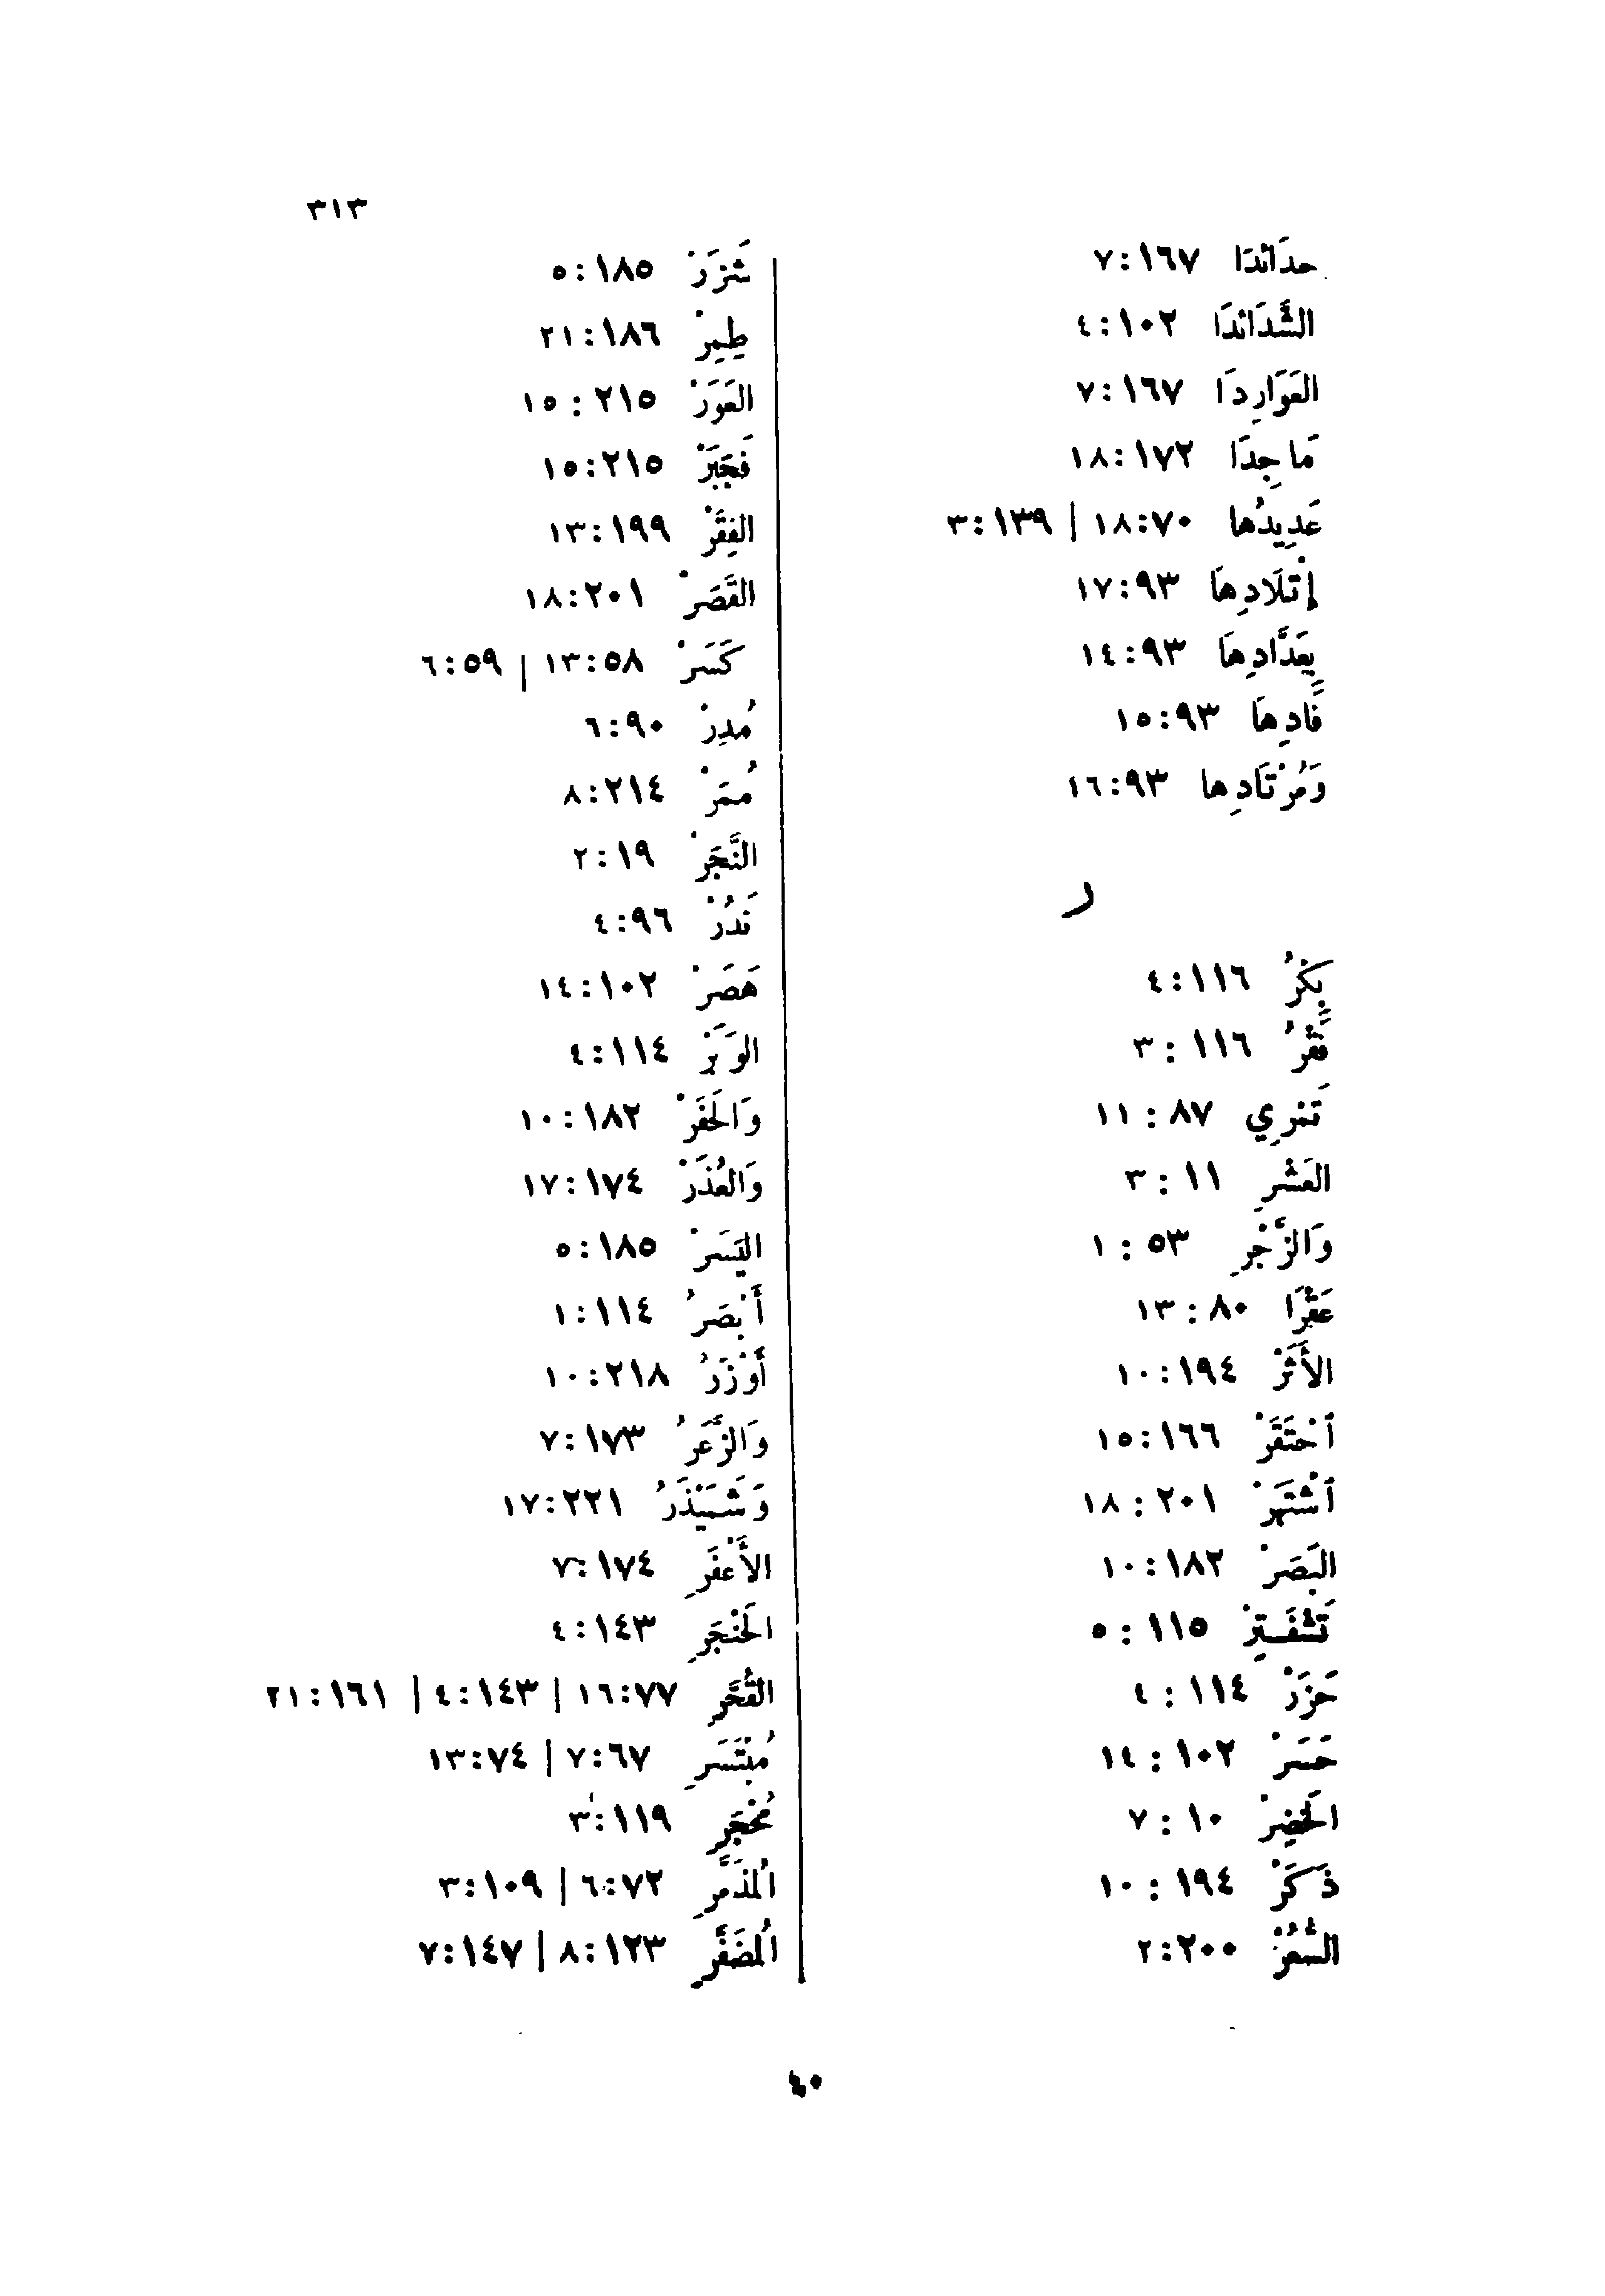 ٣١٣
حدَائدَا ١٦٧:٧
الشَّدَائدَا ١٠٢:٤
العَوَارِدَا ١٦٧:٧
مَاجِدَا ١٧٢:١٨
عَدِيدُها ٧٠:١٨ | ١٣٩:٣
إتْلَادِهَا ٩٣:١٧
بِعَدَّادِهَا ٩٣:١٤
فَادِهَا ٩٣:١٥
وَمُرْتَادِها ٩٣:١٦
ر
بِكْرُ ١١٦:٤
فَقْرُ ١١٦:٣
تَمْرِي ٨٧:١١
العَشْرِ ١١:٣
وَالزَّجْرِ ٥٣:١
عَقْرَا ٨٠:١٣
الأَثَرْ ١٩٤:١٠
اَحْتَقَرْ ١٦٦:١٥
اَشْتَهَرْ ٢٠١:١٨
البَصَرْ ١٨٢:١٠
تَشْفَتِرْ ١١٥:٥
حَزَرْ ١١٤:٤
حَسَرْ ١٠٢:١٤
الخَضِرْ ١٠:٧
ذَكَرْ ١٩٤:١٠
السُّعُرْ ٢٠٠:٢
شَزَرْ ١٨٥:٥
طِمِرْ ١٨٦:٢١
العَوَرْ ٢١٥:١٥
فَجَبَرْ ٢١٥:١٥
الفِقَرْ ١٩٩:١٣
القَصَرْ ٢٠١:١٨
كَسَرْ ٥٨:١٣ | ٥٩:٦
مُدِرْ ٩٠:٦
مُمَرْ ٢١٤:٨
النَّجَرْ ١٩:٢
نَدُرْ ٩٦:٤
هَصَرْ ١٠٢:١٤
الوَبَرْ ١١٤:٤
وَالحَفَرْ ١٨٢:١٠
وَالعُذَرْ ١٧٤:١٧
اليَسَرْ ١٨٥:٥
أَبْصَرُ ١١٤:١
أَوْزَرُ ٢١٨:١٠
وَالزَّعَرُ ١٧٣:٧
وَشَمَيْذَرُ ٢٢١:١٧
الأَعْفَرِ ١٧٤:٧
الحَنْجَرِ ١٤٣:٤
القُحَّرِ ٧٧:١٦ | ١٤٣:٤ | ١٦١:٢١
مُبْتَسَرِ ٦٧:٧ | ٧٤:١٣
مُحْجَرِ ١١٩:٣
اُلمذَمَّرِ ٧٢:٦ | ١٠٩:٣
اُلمضَفَّرِ ١٢٣:٨ | ١٤٧:٧
٤٠